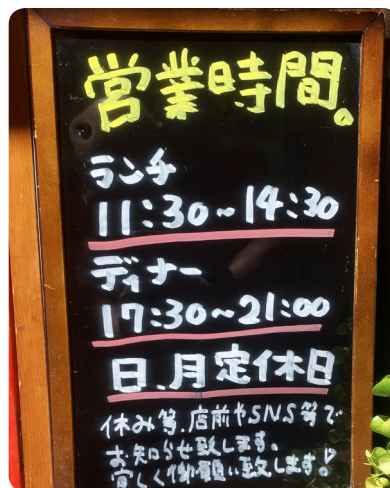 営業時間。
ランチ
11:30~14:30
ディナー
17:30~21:00
日、月定休日
休み等、店前やSNS等で
お知らせ致します。
宜しく御願い致します!